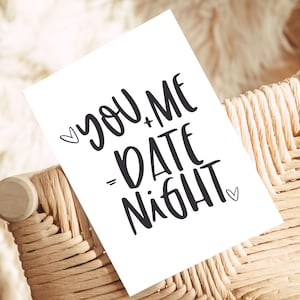 YOU + ME
= DATE
NiGHT